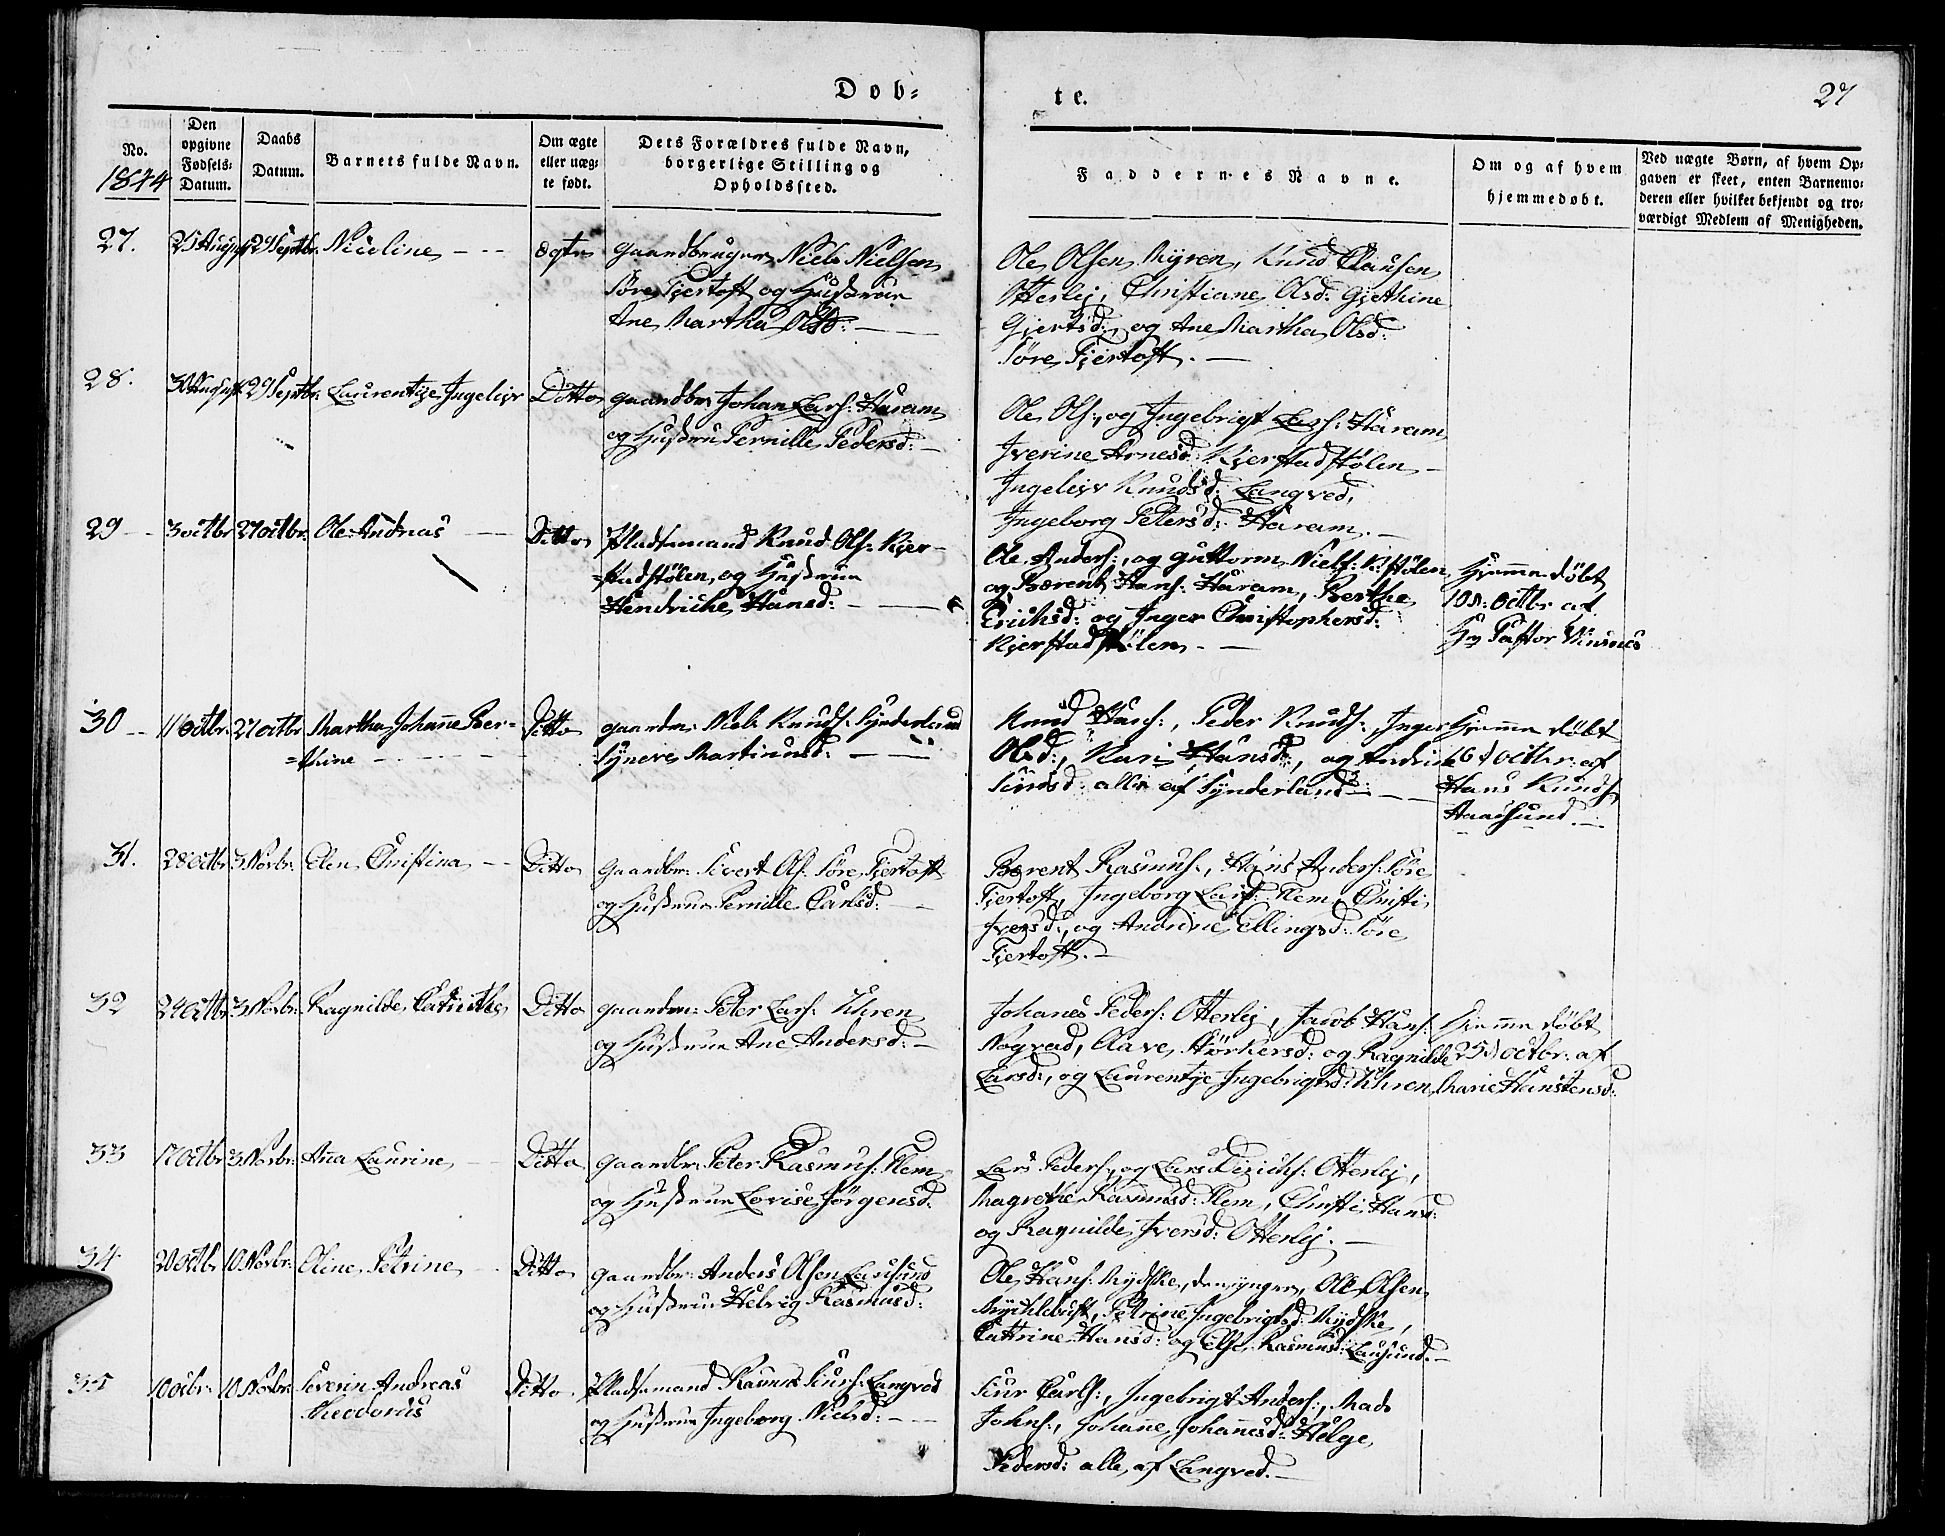 Døb-
te.
27
No.
1844
Den
opgivne
Fødsels-
Datum.
Daabs
Datum.
Barnets fulde Navn.
Om ægte
eller uæg-
te født.
Dets Forældres fulde Navn,
borgerlige Stilling og
Opholdssted.
Faddernes Navne.
Om og af hvem
hjemmedøbt.
Ved uægte Børn, af hvem Op-
gaven er skeet, enten Barnemo-
deren eller hvilket bekjendt og tro-
værdigt Medlem af Menigheden.
27. 25 August 29 Septbr. Nicoline
ægte
Gaardbruger Niels Nielsen
Søre Fjertoft og Hustrue
Ane Martha Olsd:
Ole Olsen Myren, Knud Clausen
Otterlej, Christiane Olsd: Gjethine
Gjertsd: og Ane Martha Olsd:
Søre Fjertoft.
28. 30 August 29 Septbr. Laurentze Ingeleiv
Ditto
gaardbr: Johan Lars: Haram
og Hustrue Pernille Pedersd:
Ole Ols:, og Ingebrigt Lars: Haram
Iverine Arnesd: Kjerstadstølen
Ingeleiv Knudsd: Langved,
Ingeborg Petersd: Haram.
29 3 octbr 27 octbr. Ole Andreas
Ditto
Pladsemand Knud Ols: Kjer-
=stadstølen, og Hustrue
Hendriche Hansd:
Ole Anders:, og Guttorm Niels: K:stølen
og Berent Hans: Haram, Berthe
Erichsd: og Inger Christophersd:
Kjerstadstølen
Hjemmedøbt
10d: octbr af
Hr Pastor
30 11 octbr. 27 octbr Martha Johanne Ber-
=thine
Ditto
gaardm: Niels Knuds: Synderland
Synneve Martinusd:
Knud Hans:, Peder Knuds:, Inger
Olsd:, Kari Hansd:, og Andrine
alle af Synderland
Hjemmedøbt
16d octbr: af
Hans Knuds:
31. 28 octbr 3 Novbr. Elen Christina
Ditto
Gaardbr: Sivert Ols: Søre Fjertoft
og Hustrue Pernille Carlsd:
Berent Rasmus:, Hans Anders: Søre
Fjertoft, Ingeborg Larsd: Flem, Christi
Iversd:, og Andrine Ellingsd: Søre
Fjertoft.
32 24 octbr 3 Novbr. Ragnilde Cathrithe
Ditto
gaardm: Peter Lars: Uhren
og Hustrue Ane Andersd:
Johanes Peders: Otterlej, Jacob Hans:
Nogvad, Aave Størkersd: og Ragnilde
Larsd:, og Laurentze Ingebrigtsd: Uhren
Hjemmedøbt
25d octbr. af
Marie Hanstensd:
33 17 octbr 3 Novbr. Ana Laurine
Ditto
gaardbr: Peter Rasmus: Flem
og Hustrue Lovise Jørgensd:
Lars Peders: og Lars Didrichs: Otterlej,
Magrethe Rasmusd: Flem, Christi Hansd:
og Ragnilde Iversd: Otterlej.
34 20 octbr 10 Novbr. Oline Petrine
Ditto
gaardbr: Anders Olsen Lausund
og Hustrue Helvig Rasmusd:
Ole Hans: Rydske, den yngere, Ole Olsen
Mychlebust, Petrine Ingebrigtsd: Rydske,
Cathrine Hansd: og Else Rasmusd: Lausund.
35 10 octbr. 10 Novbr. Severin Andreas
Theodorus
Ditto
Pladsemand Rasmus Siurs: Langved
og Hustrue Ingeborg Nielsd:
Siur Carls:, Ingebrigt Anders:, Mads
Johns:, Johanne Johannesd: Helge
Pedersd: alle af Langved.